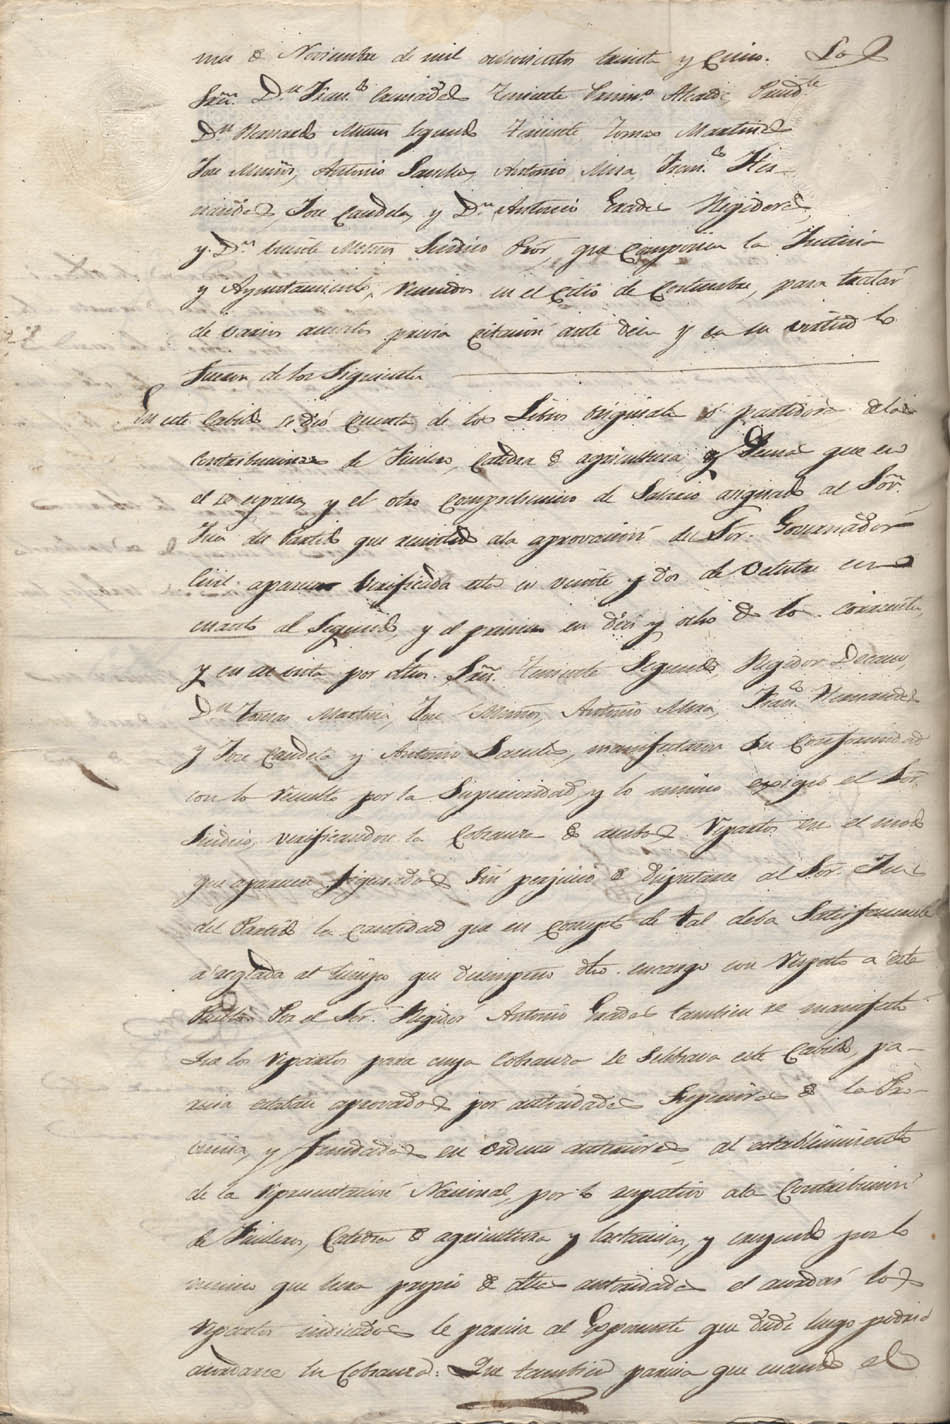 mes de Noviembre de mil ochocientos treinta y Cinco. Los
Señs. Dn. Franco. Teniente primo. Alcalde, Presidte
Dn. Bernardo Segundo Teniente, Tomas Martines
Jose Muños, Antonio Sanches, Antonio Mira, Franco. Her-
nandes, Jose Candela, y Dn. Antonio Regidores,
y Dn. Vicente Sindico Pror. gral que componen la Justicia
y Ayuntamiento, reunidos en el citio de Costumbre, para tratar
de varios asuntos previa citacion ante diem y en su virtud lo
fueron de los Siguientes
En este Cabildo se dió Cuenta de los Libros originales de las
Contribuciones de Fusileros, Catedra de agricultura y demas que en
el se expresa, y el otro comprehensivo de Salario asignado al Sor.
Juez del Partido que remitidos ala aprovación del Sor. Governador
Civil aparece Verificada esta en veinte y dos de Octubre en
cuanto al Segundo, y el primero en dies y ocho de los corrientes,
y en su vista por dhos. Señs. Teniente Segundo, Regidor Decano,
Dn. Tomas Martines, Jose Muños, Antonio Mira, Franco. Hernandes
y Jose Candela y Antonio Sanches, manifestaron su Conformidad
con lo resuelto por la Superioridad, y lo mismo el Sor.
Sindico, verificandose la Cobranza de ambos Repartos en el modo
que aparecen figurados sin perjuicio de disputarse al Sor. Juez
del Partido la cantidad que en concepto de tal deba Satisfacersele
arreglada al tiempo que desempeño dho. encargo con respeto a este
Pueblo. Por el Sor. Regidor Antonio tambien se manifestó
los repartos para cuya Cobranza se selebrava este Cabildo, pa-
recia estaban aprovados por autoridades Superiores de la Pro-
vincia, y fundados en ordenes anteriores al establecimiento
de la Representacion Nacional, por lo respectivo ala Contribucion
de Fusileros, Catedra de agricultura y y creyendo por lo
mismo que era propio de otras autoridades el acordar los
Repartos indicados le parecia al Esponente que desde luego podria
acordarse la Cobranza: Que tambien parecia que cuando el